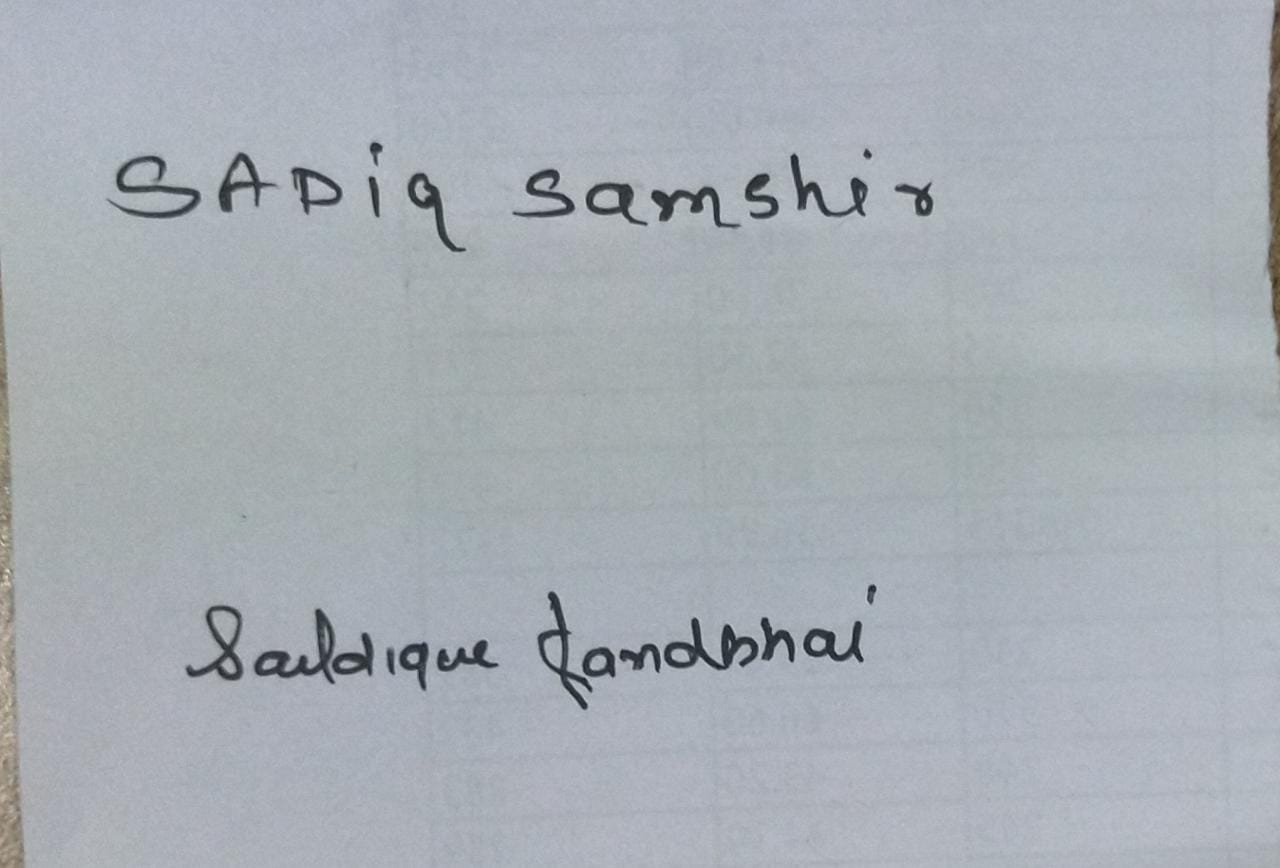 SADiq Samshir
Sauldique Jandbhai